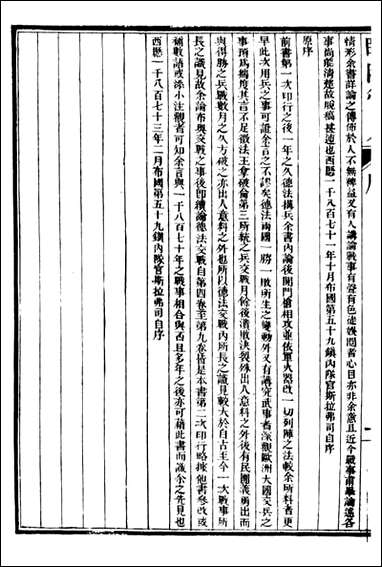 情形余書詳論之傳佈於人不無裨益又有人講論戰事有聲有色虛談悶者心目亦非余意且近今戰事甫畢論述各
事尚能清楚故脫稿甚速也西歷一千八百七十一年十月布國第五十九鎭內隊官斯拉弗司自序
原序
前書第一次印行之後一年之久德法構兵余書內論後開門鎗相攻並依軍火器改一切列陣之法較余所料者更
早此次用兵之事可證余言之不謬矣德法兩國一勝一敗所生之變動外又有講究武事者深觀歐洲大國交兵之
事所爲稱度其言不足徵法王拿破侖第三所統之兵交戰月餘後潰敗決裂殊出人意料之外後有民團義勇出而
與得勝之兵戰數月之久方破之亦出人意料之外也所以德法交戰內所長之識見較大於自古至今一次戰事所
長之識見故余論布與交戰之事後卽續論德法交戰自第四卷至第九卷皆是本書第二次印行略據他書參改或
補數語或添小注觀者可知余言與一千八百七十年之戰事相合與否且多年之後亦可藉此書而識余之先見也
西歷一千八百七十三年二月布國第五十九鎭內隊官斯拉弗司自序